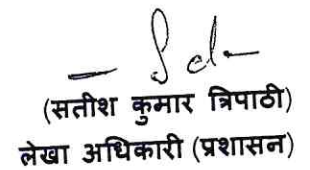 – Sd –
(सतीश कुमार त्रिपाठी)
लेखा अधिकारी (प्रशासन)